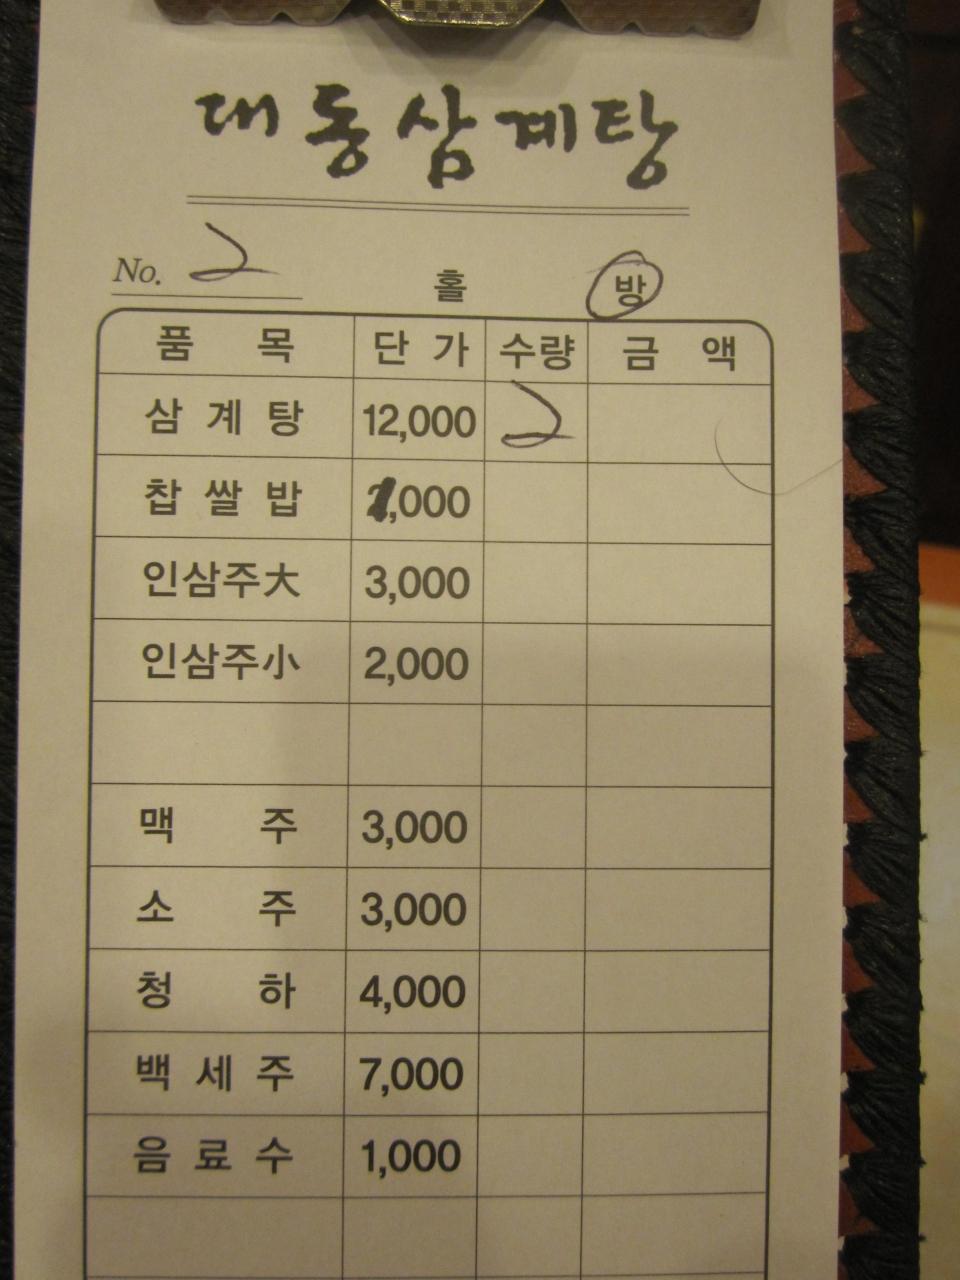 대동삼계탕
No. 2 홀 방
품 목 단 가 수량 금 액
삼 계 탕 12,000 2
찹 쌀 밥 1,000
인삼주大 3,000
인삼주小 2,000
맥 주 3,000
소 주 3,000
청 하 4,000
백 세 주 7,000
음 료 수 1,000